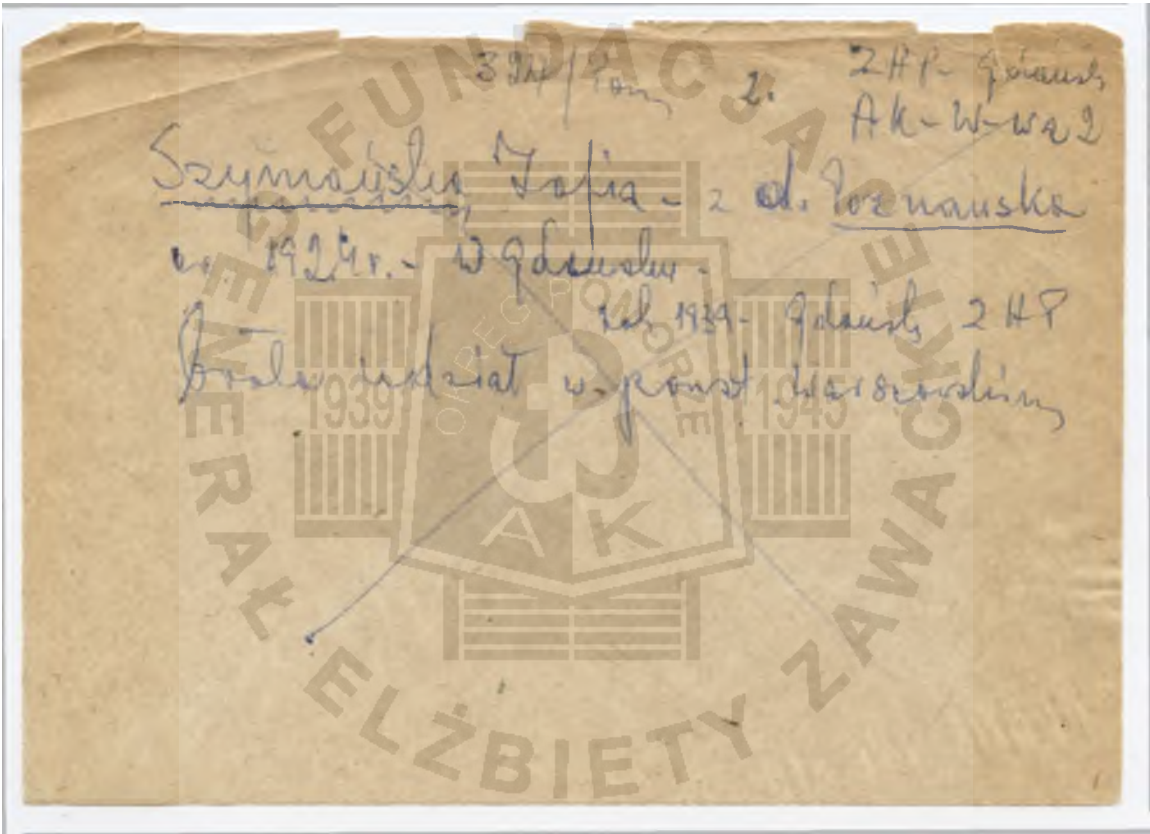 2.
ZHP - Gdańsk
AK - W-wa 2
Szymańska Zofia - z d. Poznańska
ur. 1924 r. - w Gdańsku -
1939 - Gdańsk ZHP
Brała udział w powst. Warszawskim
FUNDACJA
GENERAŁ ELŻBIETY ZAWACKIEJ
OKRĘG POMORZE
1939
1945
AK